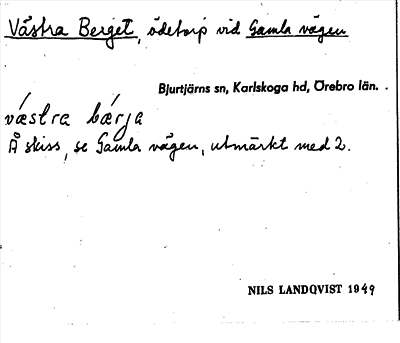 Västra Berget, ödetorp vid Gamla vägen
Bjurtjärns sn, Karlskoga hd, Örebro län.
vǽstra bǽrja
Å skiss, se Gamla vägen, utmärkt med 2.
NILS LANDQVIST 1949